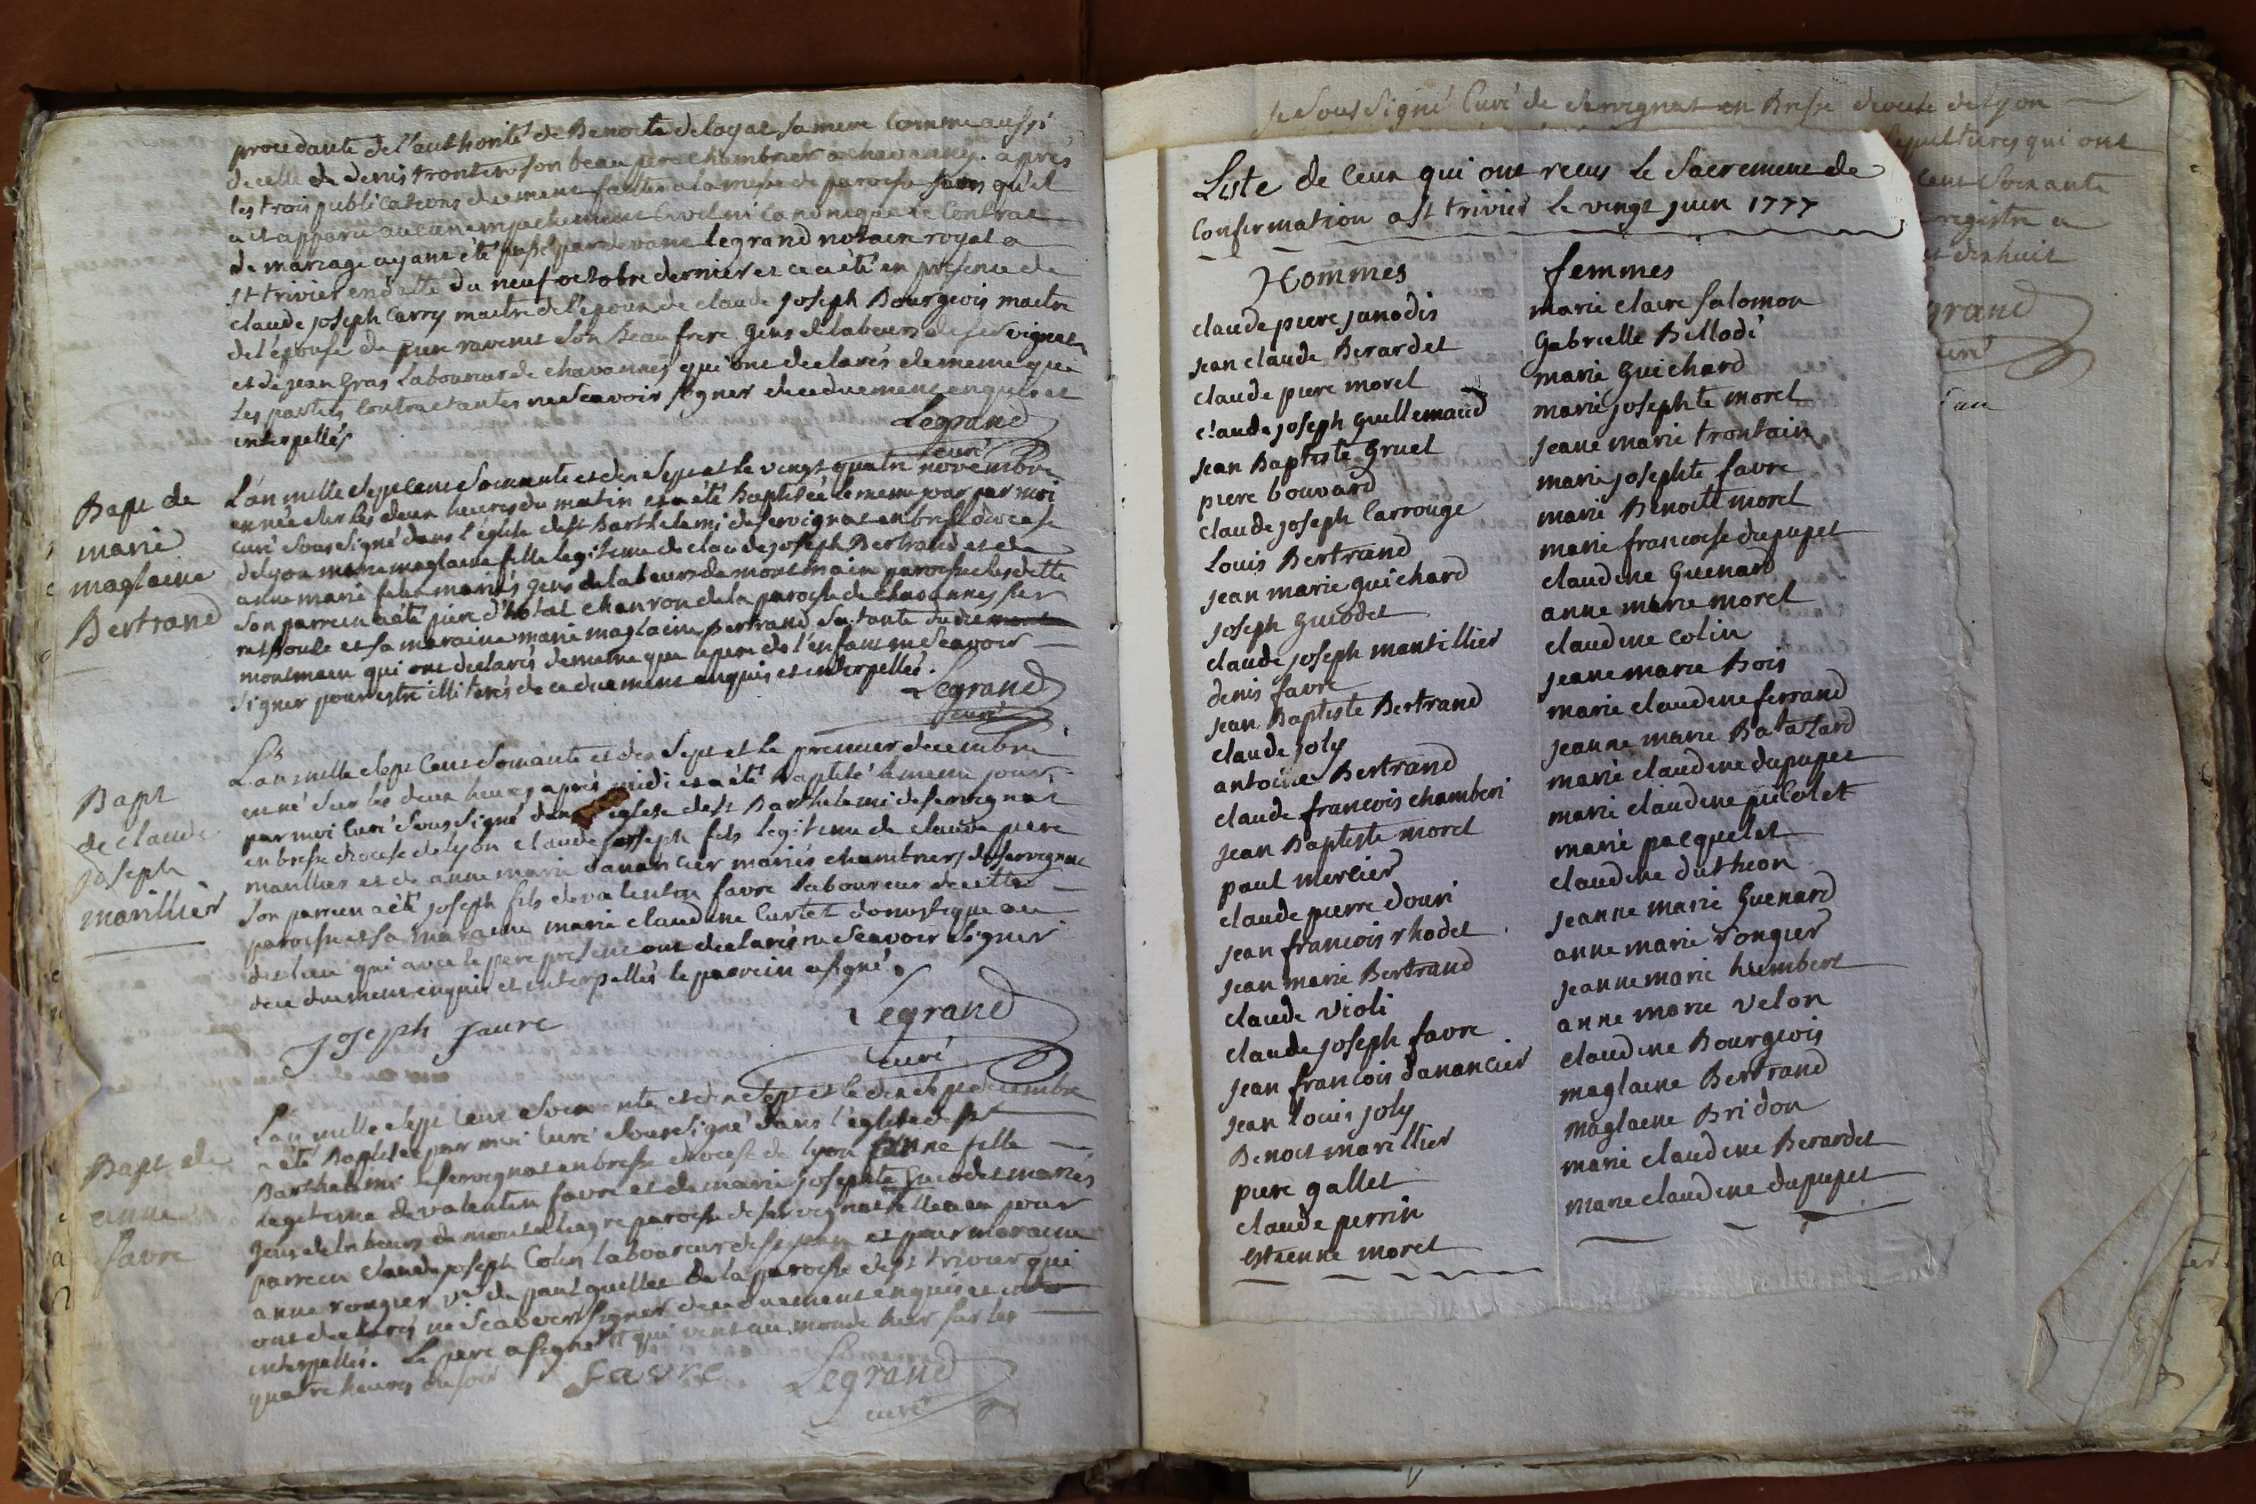 procedante de l'authorité de Benoite deloyat sa mere comme aussi
de celle de denis trontin son beau pere chambrier a chavannes. apres
les trois publications duement faites a la messe de paroisse sans qu'il
a it apparu aucun empechement civil ni canonique le contrat
de mariage ayant été passé pardevant legrand notaire royal a
st trivier en datte du neuf octobre dernier et ce a été en presence de
claude joseph Carry maitre de l'epoux de claude joseph Bourgeois maitre
de l'épouse de piere ravenet son Beau frere gens de labeurs de servignat
et de jean Gras laboureur de chavannes qui ont declarés de meme que
les parties contractantes ne sçavoir signer de ce duement enquis et
interpellés
Legrand
curé
Bapt de
marie
maglaine
Bertrand
L'an mille sept cent soixante et dix sept et le vingt quatre novembre
en née sur les deux heures du matin et a été Baptisée le meme jour par moi
curé soussigné dans l'église de st Barthelemi de servignat en bresse diocese
de lyon marie maglaine fille legitime de claude joseph Bertrand et de
anne marie mariés gens de labeurs de montmain paroisse
son parrein a été piere chanron de la paroisse de chavannes sur
ressouse et sa maraine marie maglaine Bertrand sa tante
montmain qui ont declarés de meme que le pere de l'enfant ne sçavoir
signer pour estre illiterés de ce duement enquis et interpellés.
Legrand
curé
Bapt
de claude
joseph
marillier
L'an mille sept cent soixante et dix sept et le premier decembre
en né sur les deux heures après midi et a été baptisé le meme jour
par moi curé soussigné dans église de st Barthelemi de servignat
en bresse diocese de lyon claude joseph fils legitime de claude piere
marillier et de anne marie danancier mariés chambriers de servignat
son parrein a été joseph fils de valentin favre laboureur de cette
paroisse et sa maraine marie claudine Curtet domestique au
dit lieu qui avec le pere present ont declarés ne sçavoir signer
de ce duement enquis et interpellés le parrein a signé.
joseph favre
Legrand
curé
Bapt de
anne
favre
L'an mille sept cent soixante et dix sept et le dix sept decembre
a été Baptisée par moi curé soussigné dans l'église de st
Barthelemi de servignat en bresse diocese de lyon anne fille
legitime de valentin favre et de marie josephte Guiodet mariés
gens de labeurs de paroisse de servignat elle a eu pour
parrein claude joseph Colin laboureur de st jean et pour maraine
anne rongier ve de paul de la paroisse de st trivier qui
ont declarés ne sçavoir signer de ce duement enquis et
interpellés. Le pere a signé qui vint au monde hier sur les
quatre heures du soir
favre
Legrand
curé
je soussigné Curé de servignat en Bresse diocese de lyon
sepultures qui ont
cent soixante
registre a
et dix huit
grand
curé
l'an
Liste de Ceux qui ont recus le Sacrement de
Confirmation a st trivier le vingt juin 1777
Hommes
claude piere janodis
jean claude Berardet
claude piere morel
claude joseph guillemaud
jean Baptiste Gruel
piere bouvard
claude joseph Carrouge
Louis Bertrand
jean marie guichard
joseph guiodet
claude joseph mantillier
denis favre
jean Baptiste Bertrand
claude joly
antoine Bertrand
claude francois chamberi
jean Baptiste morel
paul mercier
claude pierre douri
jean francois rhodet
jean marie Bertrand
claude violi
claude joseph favre
jean francois danancier
jean louis joly
Benoit marillier
piere gallet
claude perrin
estienne morel
femmes
marie claire salomon
Gabrielle Billodé
marie guichard
marie josephte morel
jeane marie trontain
marie josephte favre
marie Benoite morel
marie francoise dupupet
claudine Guenard
anne marie morel
claudine colin
jeane marie Bois
marie claudine ferrand
jeanne marie Batazard
marie claudine dupupet
marie claudine picolet
marie pacquelet
claudine dutheon
jeanne marie Guenard
anne marie rongier
jeanne marie humbert
anne marie velon
claudine Bourgeois
maglaene Bertrand
maglaene Bridon
marie claudine Berardet
marie claudine dupupet